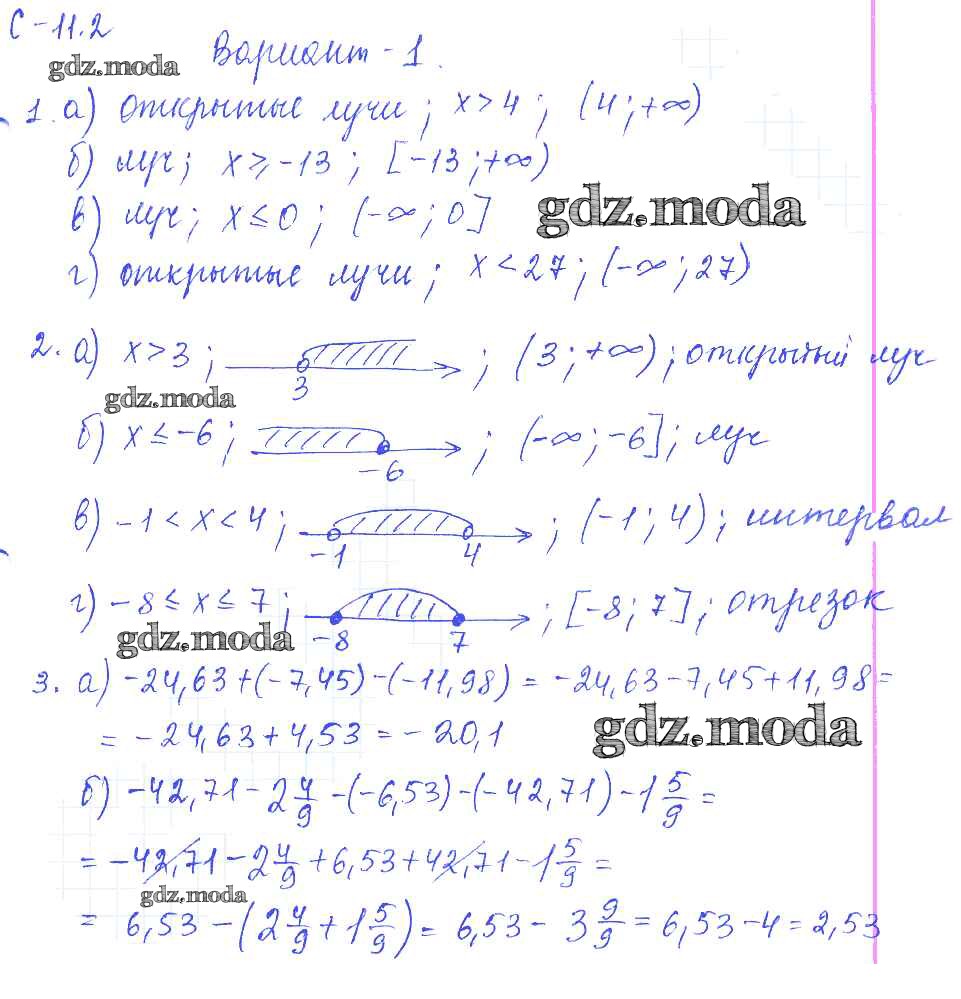 С-11.2
gdz.moda Вариант-1.
1. а) открытые лучи; x>4; (4;+∞)
б) луч; x⩾-13; [-13;+∞)
в) луч; x≤0; (-∞;0]
gdz.moda
г) открытые лучи; x<27; (-∞;27)
2. а) x>3; 3; (3;+∞); открытый луч
gdz.moda
б) x≤-6; -6; (-∞;-6]; луч
в) -1<x<4; -1 4; (-1;4); интервал
г) -8≤x≤7; -8 7; [-8;7]; отрезок
gdz.moda
3. а) -24,63+(-7,45)-(-11,98)=-24,63-7,45+11,98=
=-24,63+4,53=-20,1
gdz.moda
б) -42,71-2 4/9-(-6,53)-(-42,71)-1 5/9=
=-42,71-2 4/9+6,53+42,71-1 5/9=
gdz.moda
=6,53-(2 4/9+1 5/9)=6,53-3 9/9=6,53-4=2,53